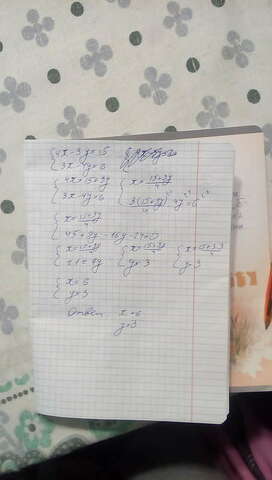 4x - 3y = 15
3x - 4y = 6
4x = 15 + 3y
3x - 4y = 6
x = 15+3y/4
3(15+3y/4) - 4y = 6
x = 15+3y/4
45 + 9y - 16y - 24 = 0
x = 15+3y/4
21 = 7y
x = 15+3y/4
y = 3
y = 3
x = 6
y = 3
Ответ x = 6
y = 3